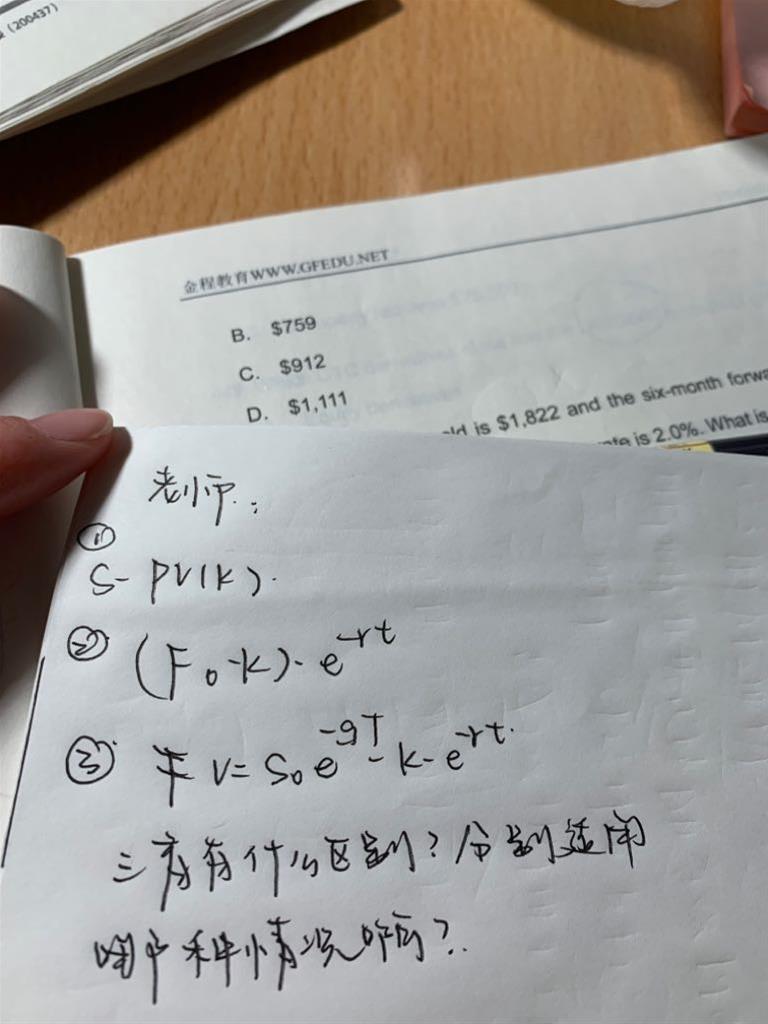 (200437)
金程教育WWW.GFEDU.NET
B. $759
C. $912
D. $1,111
is $1,822 and the six-month
is 2.0%. What is
老师:
①
S- PV(K).
② (F₀-K)·e^-rt
③ FV= S₀e^-qT - K·e^-rt.
三者有什么区别?分别适用
哪种情况呢?